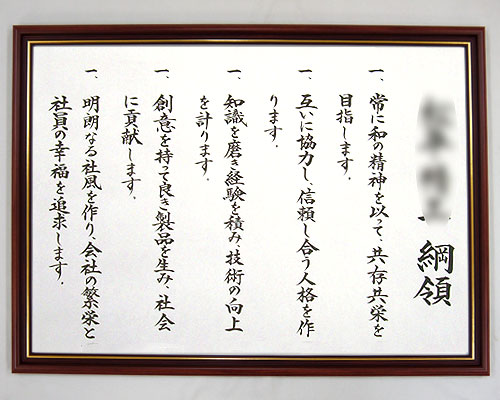 綱領
一、常に和の精神を以って、共存共栄を
目指します.
一、互いに協力し、信頼し合う人格を作
ります.
一、知識を磨き経験を積み、技術の向上
を計ります.
一、創意を持って良き製品を生み、社会
に貢献します.
一、明朗なる社風を作り、会社の繁栄と
社員の幸福を追求します.